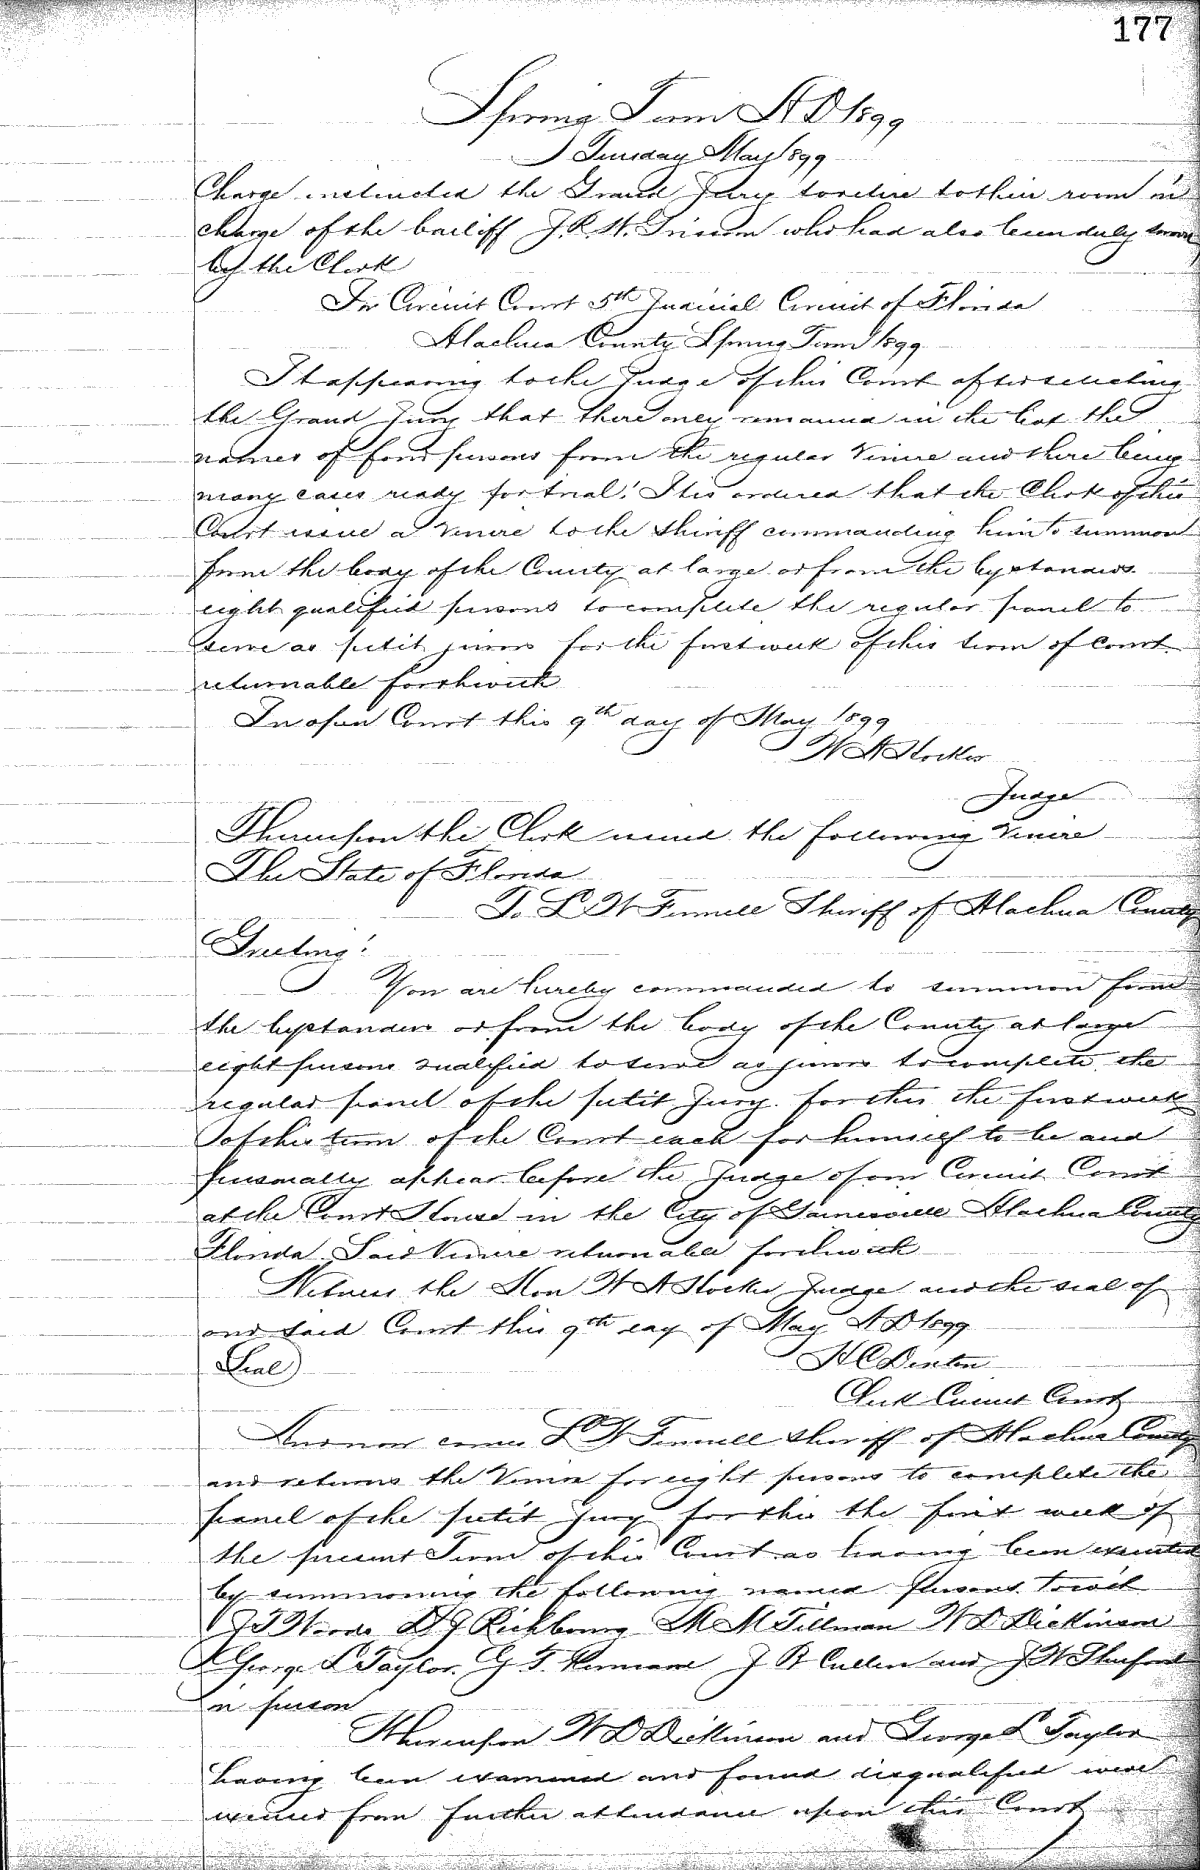 177
Spring Term A D 1899
Tuesday May 1899
Charge instructed the Grand Jury to retire to their room in
charge of the bailiff J. R. W. Grissom who had also been duly sworn
by the Clerk
In Circuit Court 5th Judicial Circuit of Florida
Alachua County Spring Term 1899
It appearing to the Judge of this Court after selecting
the Grand Jury that there only remained in the box the
names of four persons from the regular Venire and there being
many cases ready for trial. It is ordered that the Clerk of this
Court issue a Venire to the Sheriff commanding him to summon
from the body of the County at large or from the bystanders
eight qualified persons to complete the regular panel to
serve as petit jurors for the first week of this term of Court
returnable forthwith
In open Court this 9th day of May 1899
W A Hocker
Judge
Thereupon the Clerk issued the following Venire
The State of Florida
To L W Fennell Sheriff of Alachua County
Greeting:
You are hereby commanded to summon from
the bystanders or from the body of the County at large
eight persons qualified to serve as jurors to complete the
regular panel of the petit Jury for this the first week
of this term of the Court each for himself to be and
personally appear before the Judge of our Circuit Court
at the Court House in the City of Gainesville Alachua County
Florida Said Venire returnable forthwith
Witness the Hon W A Hocker Judge and the seal of
and said Court this 9th day of May A D 1899
Seal H C Denton
Clerk Circuit Court
And now comes L W Fennell Sheriff of Alachua County
and returns the Venire for eight persons to complete the
panel of the petit Jury for this the first week of
the present Term of this Court as having been executed
by summoning the following named persons towit
J T Woods D J Richbourg M M Tillman W D Dickinson
George L Taylor G T J R Cullen and J W Shuford
in person
Whereupon W D Dickinson and George L Taylor
having been examined and found disqualified were
excused from further attendance upon this Court